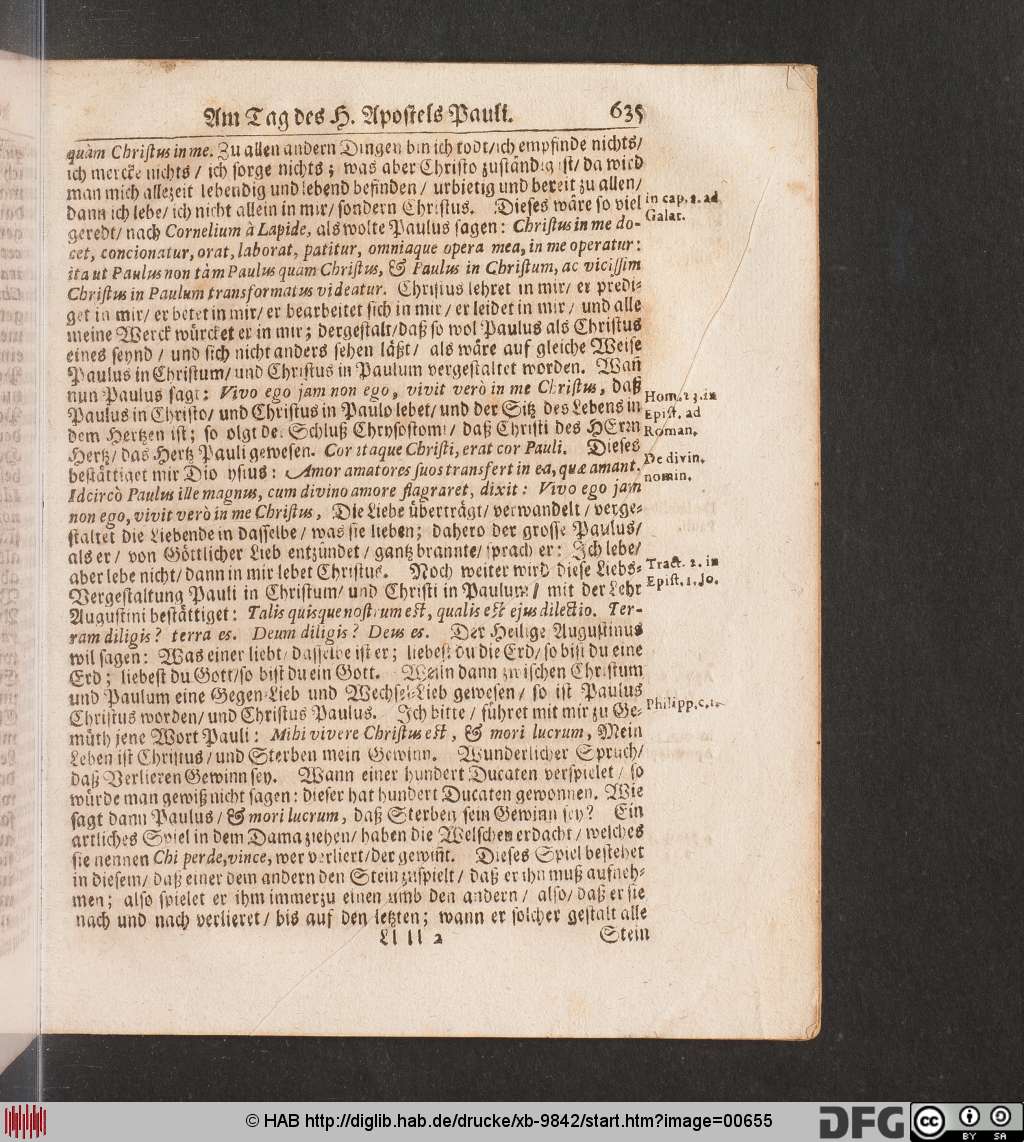 Am Tag des H. Apostels Pauli. 635
quàm Christus in me. Zu allen andern Dingen bin ich todt/ich empfinde nichts/
ich mercke nichts / ich sorge nichts; was aber Christo zuständig ist/ da wird
man mich allezeit lebendig und lebend befinden / urbietig und bereit zu allen/
dann ich lebe/ ich nicht allein in mir/ sondern Christus. Dieses wäre so viel
in cap. 2. ad
Galat.
geredt/ nach Cornelium à Lapide, als wolte Paulus sagen: Christus in me do-
cet, concionatur, orat, laborat, patitur, omniaque opera mea, in me operatur:
ita ut Paulus non tàm Paulus quàm Christus, & Paulus in Christum, ac vicissim
Christus in Paulum transformatus videatur. Christus lehret in mir/ er predi-
get in mir/ er betet in mir/ er bearbeitet sich in mir / er leidet in mir / und alle
meine Werck würcket er in mir; dergestalt/daß so wol Paulus als Christus
eines seynd / und sich nicht anders sehen läßt/ als wäre auf gleiche Weise
Paulus in Christum/ und Christus in Paulum vergestaltet worden. Wañ
nun Paulus sagt: Vivo ego jam non ego, vivit verò in me Christus, daß
Paulus in Christo/ und Christus in Paulo lebet/ und der Sitz des Lebens in
Hom. 23. in
Epist. ad
Roman.
dem Hertzen ist; so olgt der Schluß Chrysostomi/ daß Christi des HErrn
Hertz/ das Hertz Pauli gewesen. Cor itaque Christi, erat cor Pauli. Dieses
bestättiget mir Dio ysius: Amor amatores suos transfert in ea, quæ amant.
De divin.
nomin.
Idcircò Paulus ille magnus, cum divino amore flagraret, dixit: Vivo ego jam
non ego, vivit verò in me Christus, Die Liebe überträgt/ verwandelt / verge-
staltet die Liebende in dasselbe / was sie lieben; dahero der grosse Paulus/
als er / von Göttlicher Lieb entzündet / gantz brannte/ sprach er: Ich lebe/
aber lebe nicht/ dann in mir lebet Christus. Noch weiter wird diese Liebs-
Tract. 2. in
Epist. 1. Jo.
Vergestaltung Pauli in Christum/ und Christi in Paulum/ mit der Lehr
Augustini bestättiget: Talis quisque nostrum est, qualis est ejus dilectio. Ter-
ram diligis? terra es. Deum diligis? Deus es. Der Heilige Augustinus
wil sagen: Was einer liebt/ dasselbe ist er; liebest du die Erd/ so bist du eine
Erd; liebest du Gott/so bist du ein Gott. Weiln dann zwischen Christum
und Paulum eine Gegen-Lieb und Wechsel-Lieb gewesen / so ist Paulus
Christus worden/ und Christus Paulus. Ich bitte / führet mit mir zu Ge-
Philipp. c. 1.
müth jene Wort Pauli: Mihi vivere Christus est, & mori lucrum, Mein
Leben ist Christus / und Sterben mein Gewinn. Wunderlicher Spruch/
daß Verlieren Gewinn sey. Wann einer hundert Ducaten verspielet / so
würde man gewiß nicht sagen: dieser hat hundert Ducaten gewonnen. Wie
sagt dann Paulus/ & mori lucrum, daß Sterben sein Gewinn sey? Ein
artliches Spiel in dem Dama ziehen/ haben die Welschen erdacht / welches
sie nennen Chi perde, vince, wer verliert/der gewiñt. Dieses Spiel bestehet
in diesem/ daß einer dem andern den Stein zuspielt / daß er ihn muß aufneh-
men; also spielet er ihm immerzu einen umb den andern / also/ daß er sie
nach und nach verlieret / bis auf den letzten; wann er solcher gestalt alle
Ll ll 2 Stein
© HAB http://diglib.hab.de/drucke/xb-9842/start.htm?image=00655
DFG cc BY SA